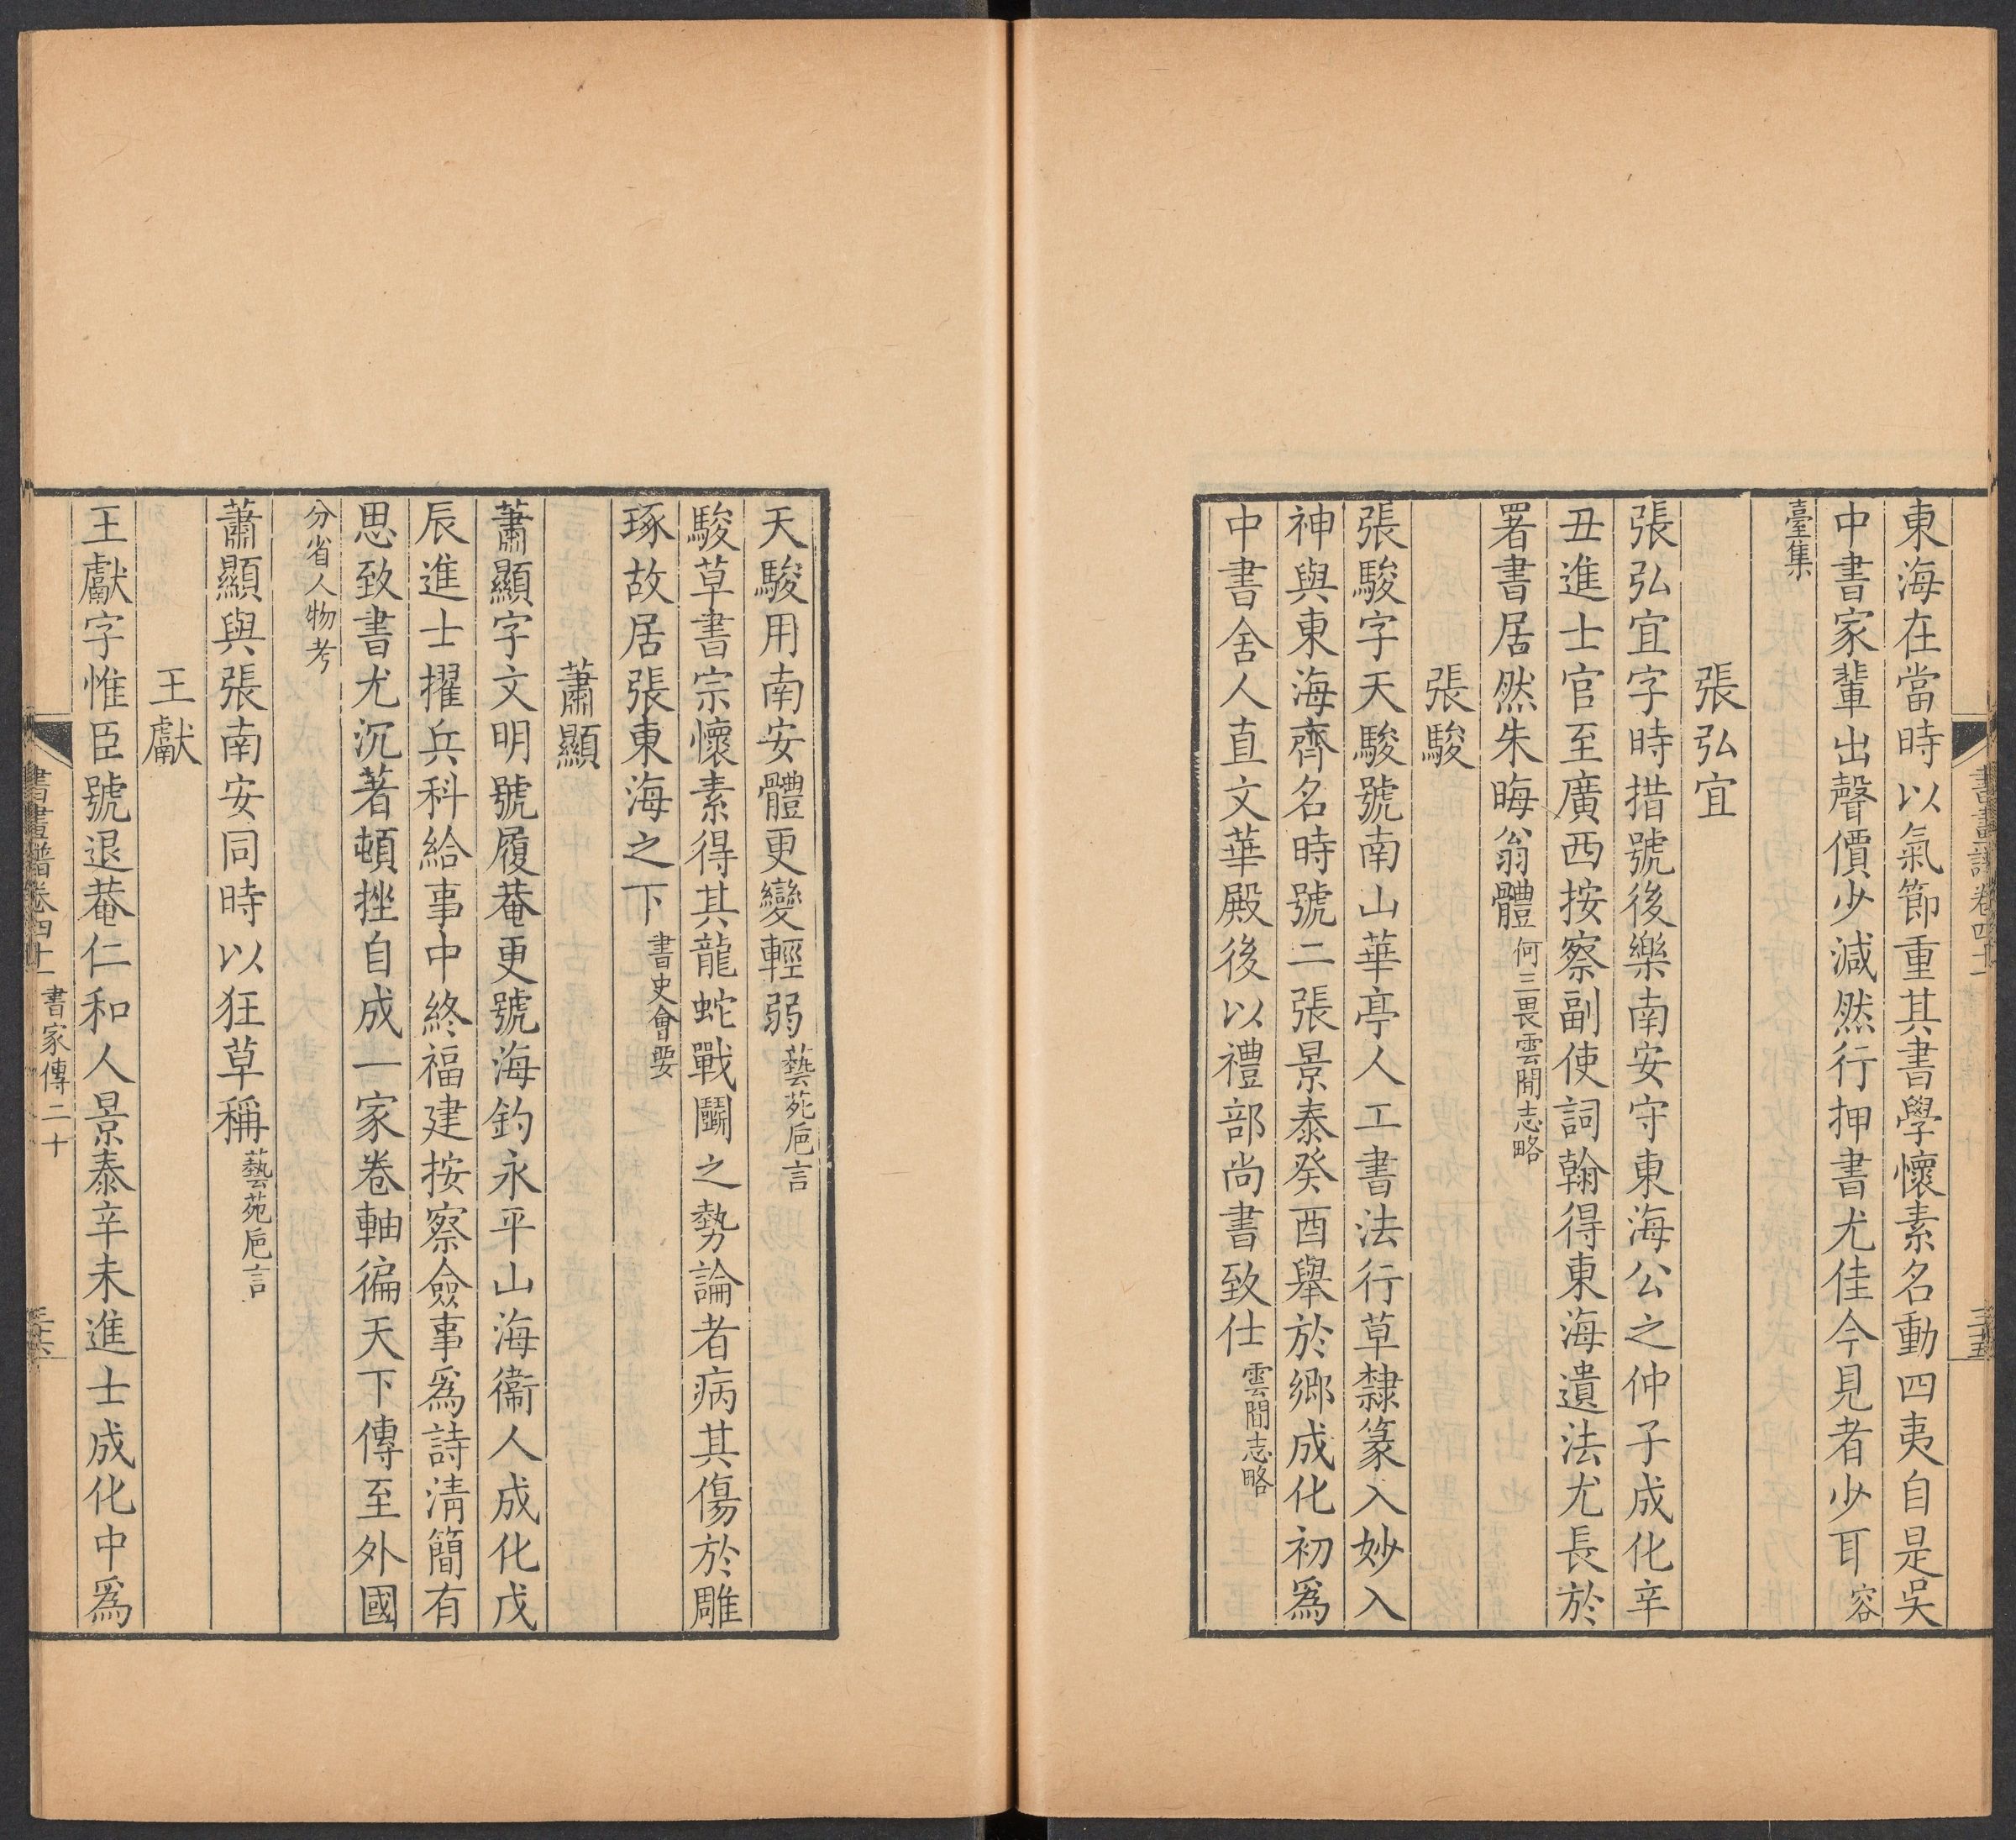 東海在當時以氣節重其書學懷素名動四夷自是吳
中書家輩出聲價少減然行押書尤佳今見者少耳容
臺集
張弘宜
張弘宜字時措號後樂南安守東海公之仲子成化辛
丑進士官至廣西按察副使詞翰得東海遺法尤長於
署書居然朱晦翁體何三畏雲間志略
張駿
張駿字天駿號南山華亭人工書法行草隸篆入妙入
神與東海齊名時號二張景泰癸酉舉於鄉成化初爲
中書舍人直文華殿後以禮部尚書致仕雲間志略
天駿用南安體更變輕弱藝苑巵言
駿草書宗懷素得其龍蛇戰鬭之勢論者病其傷於雕
琢故居張東海之下書史會要
蕭顯
蕭顯字文明號履菴更號海釣永平山海衞人成化戊
辰進士擢兵科給事中終福建按察僉事爲詩清簡有
思致書尤沉著頓挫自成一家卷軸徧天下傳至外國
分省人物考
蕭顯與張南安同時以狂草稱藝苑巵言
王獻
王獻字惟臣號退菴仁和人景泰辛未進士成化中爲
書畫譜卷四十一 書家傳二十